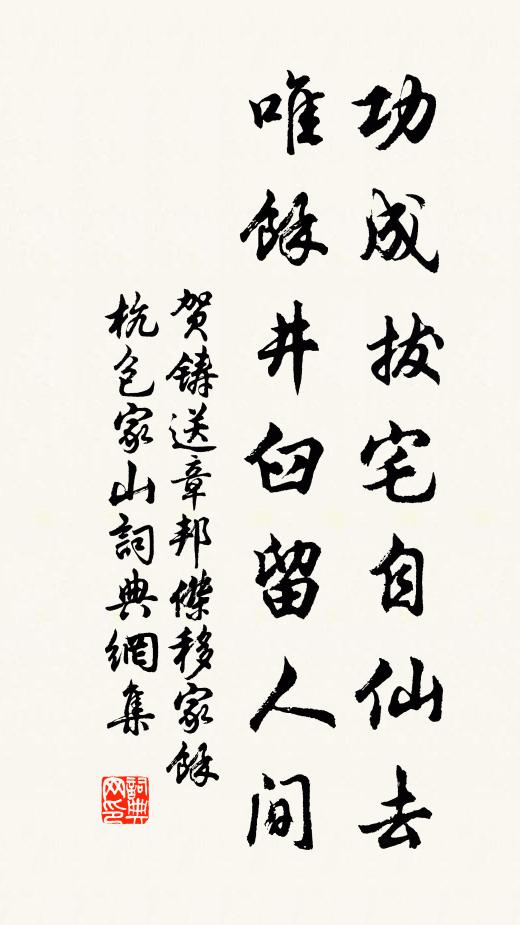 功成拔宅自仙去
唯餘井臼留人间
贺鑄送章邦傑移家餘
杭包家山詞典網集
詞典
网印